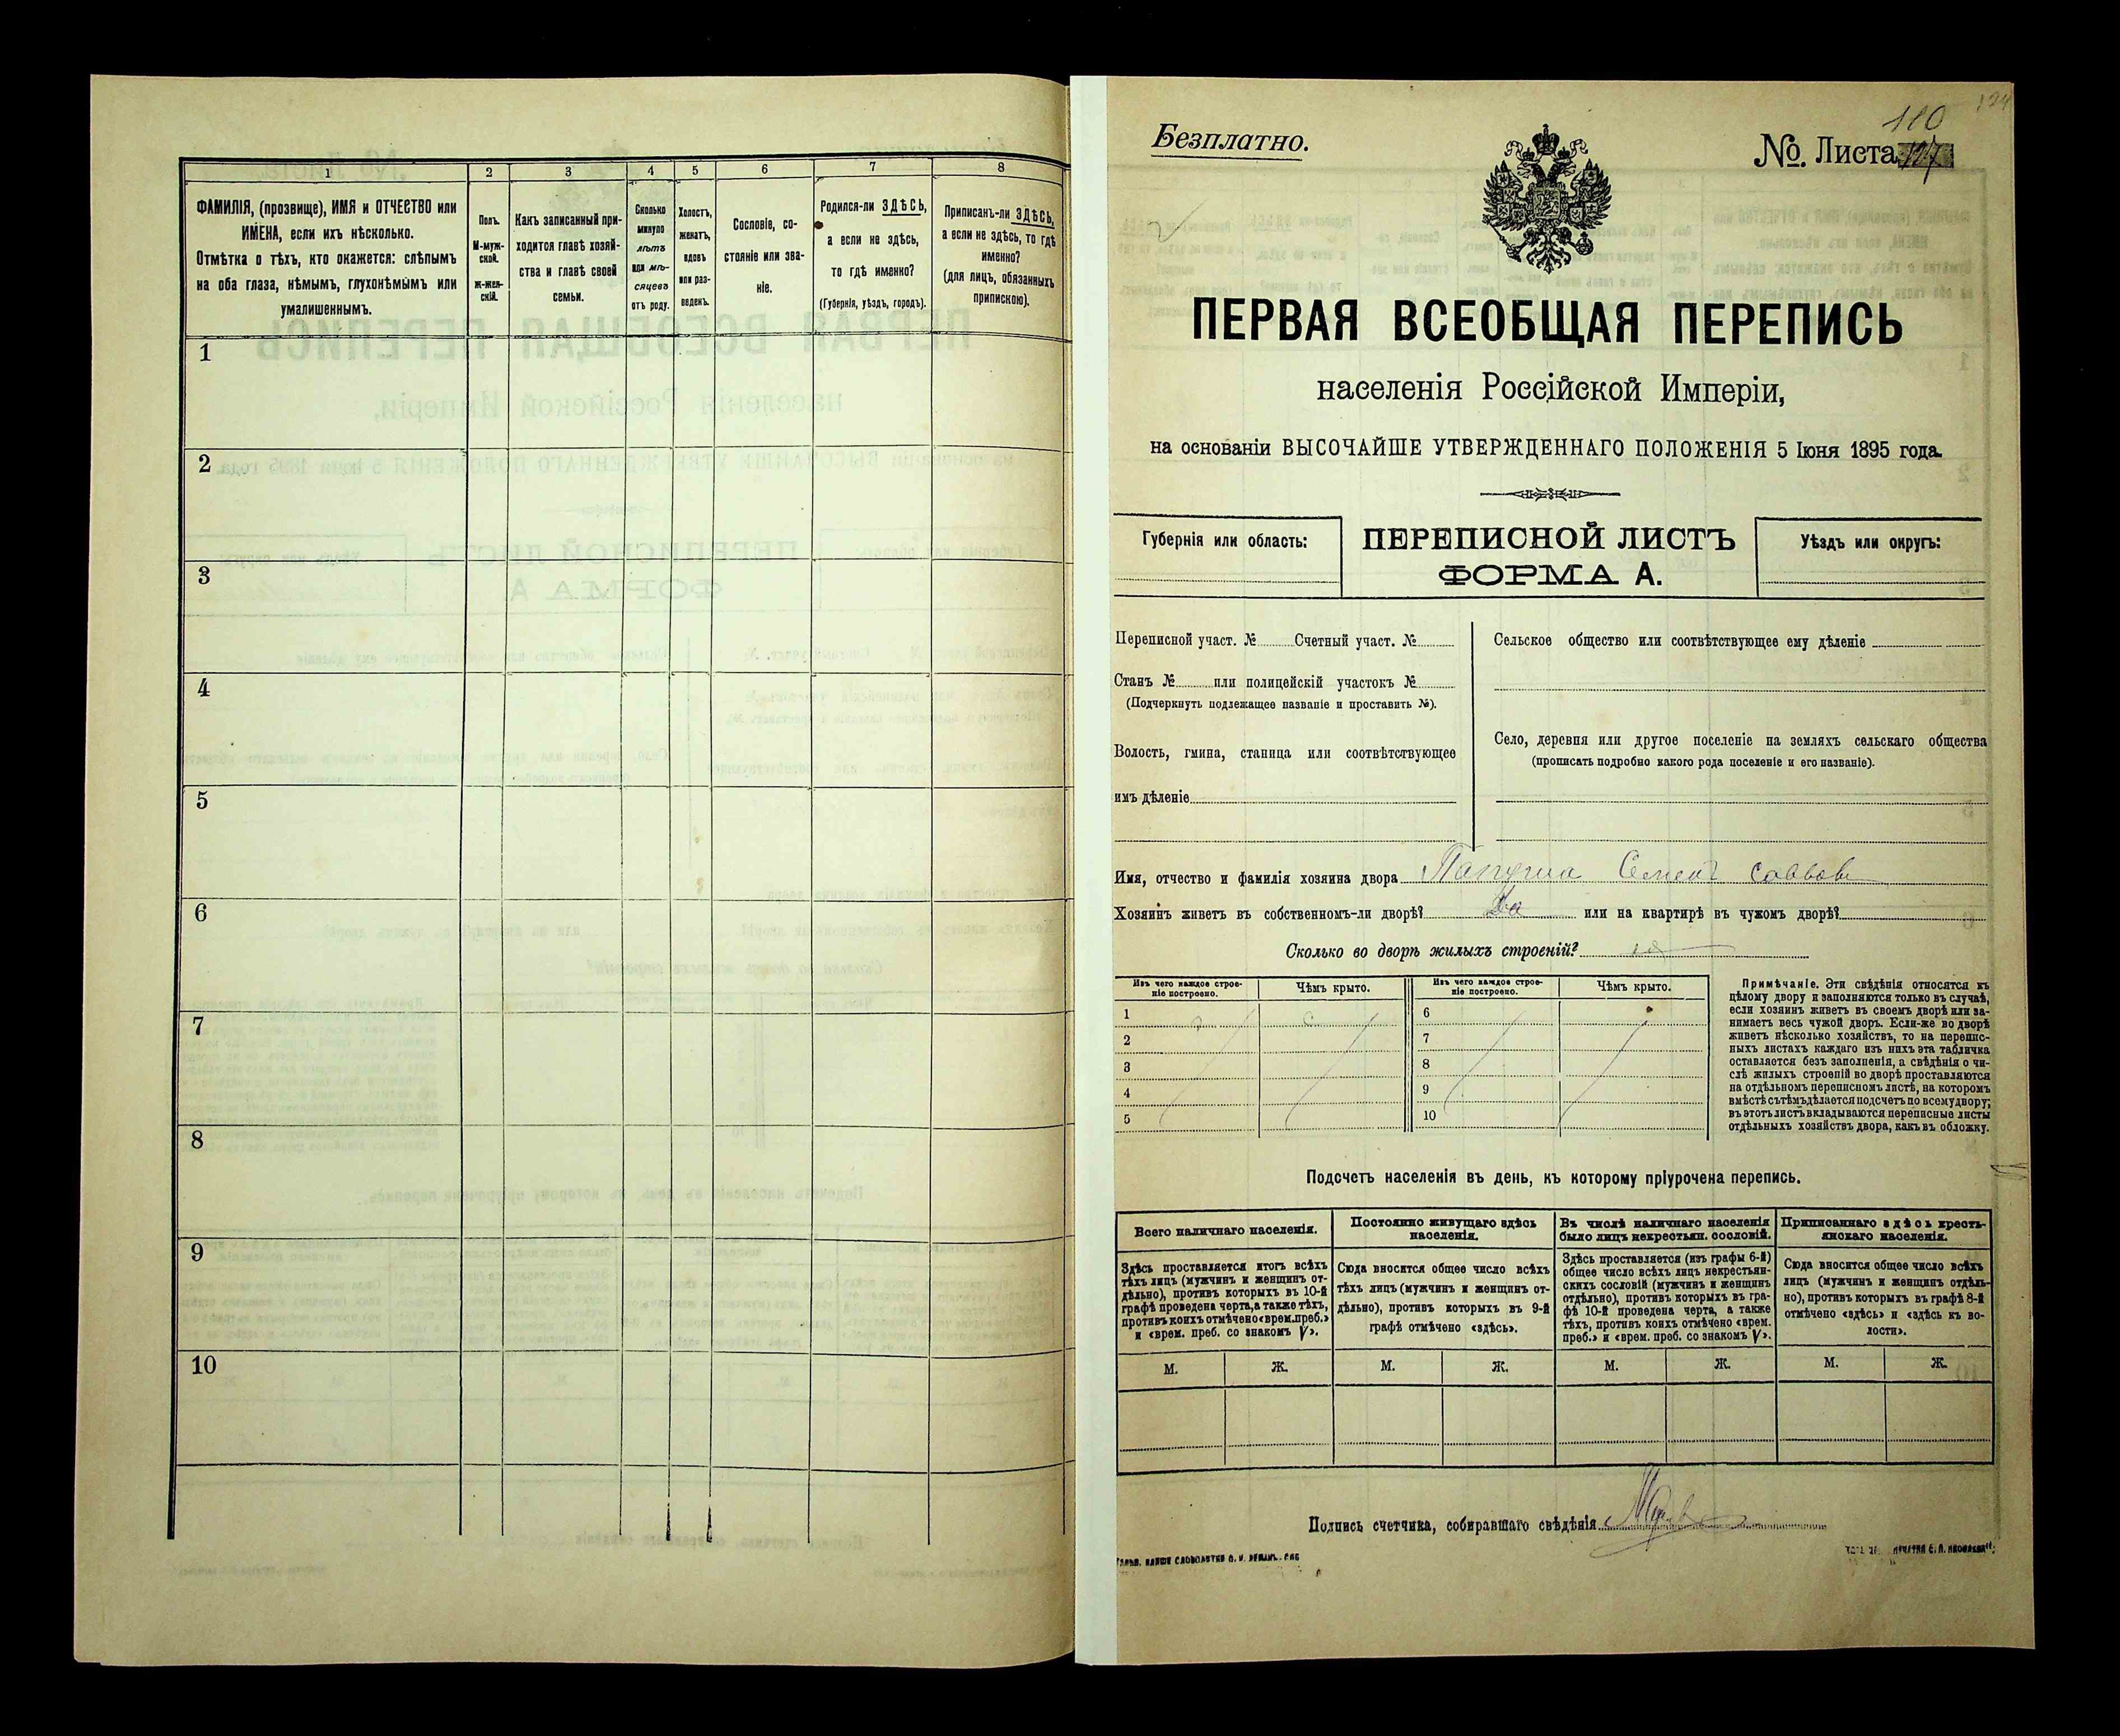 1 2 3 4 5 6 7 8
ФАМИЛІЯ, (прозвище), ИМЯ и ОТЧЕСТВО или
ИМЕНА, если ихъ нѣсколько.
Отмѣтка о тѣхъ, кто окажется: слѣпымъ
на оба глаза, нѣмымъ, глухонѣмымъ или
умалишеннымъ.
Полъ.
М-муж-
ской.
ж-жен-
скій.
Какъ записанный при-
ходится главѣ хозяй-
ства и главѣ своей
семьи.
Сколько
минуло
лѣтъ
или мѣ-
сяцевъ
отъ роду.
Холостъ,
женатъ,
вдовъ
или раз-
веденъ.
Сословіе, со-
стояніе или зва-
ніе.
Родился-ли ЗДѢСЬ,
а если не здѣсь,
то гдѣ именно?
(Губернія, уѣздъ, городъ).
Приписанъ-ли ЗДѢСЬ,
а если не здѣсь, то гдѣ
именно?
(для лицъ, обязанныхъ
припискою).
1
2
3
4
5
6
7
8
9
10
124
110
Безплатно.
№. Листа 127
ПЕРВАЯ ВСЕОБЩАЯ ПЕРЕПИСЬ
населенія Россійской Имперіи,
на основаніи ВЫСОЧАЙШЕ УТВЕРЖДЕННАГО ПОЛОЖЕНІЯ 5 Іюня 1895 года.
Губернія или область:
ПЕРЕПИСНОЙ ЛИСТЪ
ФОРМА А.
Уѣздъ или округъ:
Переписной участ. № Счетный участ. №
Станъ № или полицейскій участокъ №
(Подчеркнуть подлежащее названіе и проставить №).
Волость, гмина, станица или соотвѣтствующее
имъ дѣленіе
Сельское общество или соотвѣтствующее ему дѣленіе
Село, деревня или другое поселеніе на земляхъ сельскаго общества
(прописать подробно какого рода поселеніе и его названіе).
Имя, отчество и фамилія хозяина двора Папуша Семенъ Саввовъ
Хозяинъ живетъ въ собственномъ-ли дворѣ? Да или на квартирѣ въ чужомъ дворѣ?
Сколько во дворѣ жилыхъ строеній?
Изъ чего каждое строе-
ніе построено.
Чѣмъ крыто.
Изъ чего каждое строе-
ніе построено.
Чѣмъ крыто.
1 6
2 7
3 8
4 9
5 10
Примѣчаніе. Эти свѣдѣнія относятся къ
цѣлому двору и заполняются только въ случаѣ,
если хозяинъ живетъ въ своемъ дворѣ или за-
нимаетъ весь чужой дворъ. Если-же во дворѣ
живетъ нѣсколько хозяйствъ, то на перепис-
ныхъ листахъ каждаго изъ нихъ эта табличка
оставляется безъ заполненія, а свѣдѣнія о чи-
слѣ жилыхъ строеній во дворѣ проставляются
на отдѣльномъ переписномъ листѣ, на которомъ
вмѣстѣ съ тѣмъ дѣлается подсчетъ по всему двору;
въ этотъ листъ вкладываются переписные листы
отдѣльныхъ хозяйствъ двора, какъ въ обложку.
Подсчетъ населенія въ день, къ которому пріурочена перепись.
Всего наличнаго населенія.
Постоянно живущаго здѣсь
населенія.
Въ числѣ наличнаго населенія
было лицъ некрестьян. сословій.
Приписаннаго здѣсь кресть-
янскаго населенія.
Здѣсь проставляется итогъ всѣхъ
тѣхъ лицъ (мужчинъ и женщинъ от-
дѣльно), противъ которыхъ въ 10-й
графѣ проведена черта, а также тѣхъ,
противъ коихъ отмѣчено «врем. преб.»
и «врем. преб. со знакомъ V».
Сюда вносится общее число всѣхъ
тѣхъ лицъ (мужчинъ и женщинъ от-
дѣльно), противъ которыхъ въ 9-й
графѣ отмѣчено «здѣсь».
Здѣсь проставляется (изъ графы 6-й)
общее число всѣхъ лицъ некрестьян-
скихъ сословій (мужчинъ и женщинъ
отдѣльно), противъ которыхъ въ гра-
фѣ 10-й проведена черта, а также
тѣхъ, противъ коихъ отмѣчено «врем.
преб.» и «врем. преб. со знакомъ V».
Сюда вносится общее число всѣхъ
лицъ (мужчинъ и женщинъ отдѣль-
но), противъ которыхъ въ графѣ 8-й
отмѣчено «здѣсь» и «здѣсь къ во-
лости».
М. Ж. М. Ж. М. Ж. М. Ж.
Подпись счетчика, собиравшаго свѣдѣнія